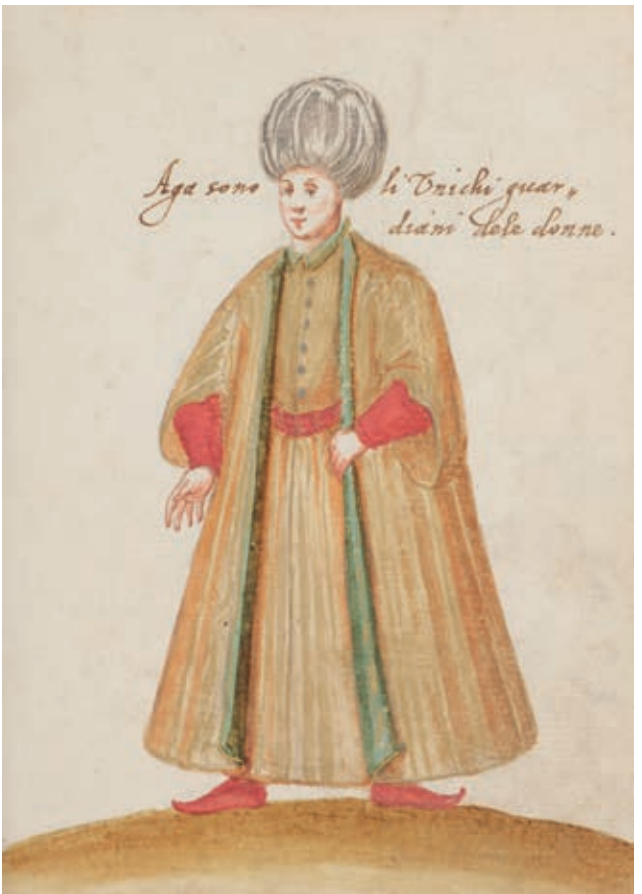 Aga sono li Vnichi guar„
diani dele donne.